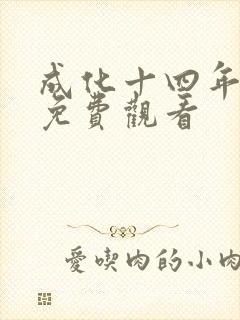 成化十四年
免費觀看
愛喫肉的小肉